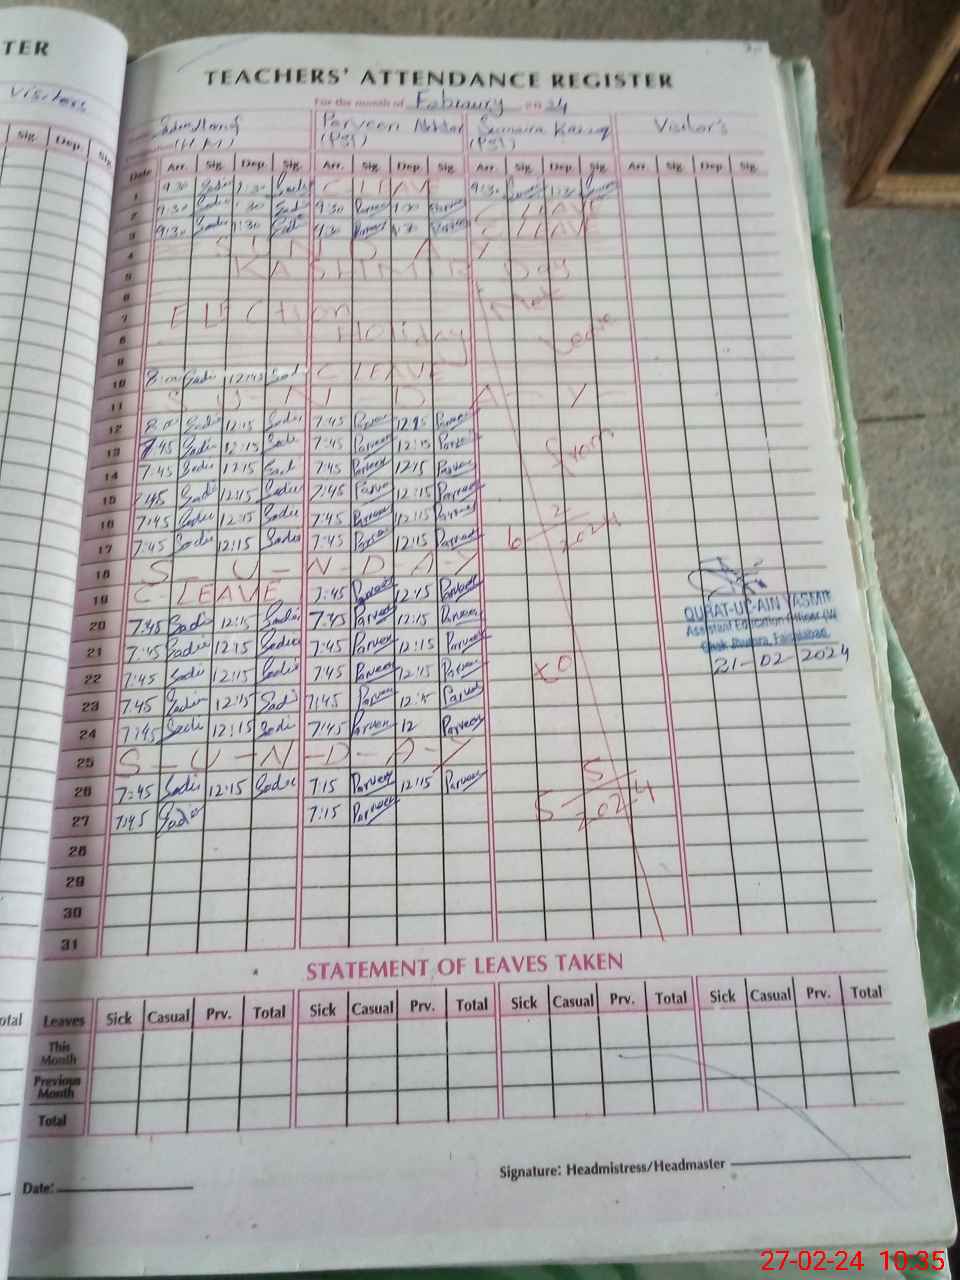 TER
Visitors
Sig. Dep. Sig
TEACHERS' ATTENDANCE REGISTER
For the month of Febraury 20 24
Parveen Akhtar Sumaira Visitor's
(H.M) (PST) (PST)
Date Arr. Sig. Dep. Sig. Arr. Sig. Dep. Sig. Arr. Sig. Dep. Sig. Arr. Sig. Dep. Sig.
1 9:30 Sadi 1:30 C LEAVE 9:30 1:30
2 9:30 Sadi 1:30 Sadi 9:30 Parveen 1:30 Parveen C LEAVE
3 9:30 Sadi 1:30 Sadi 9:30 Parveen 1:30 Parveen C LEAVE
4 S U N D A Y
5 KASHIMIR Day
6 Met
7 ELECTION
8 Holiday Leave
9
10 8:00 Sadi 12:45 Sadi C LEAVE
11 S-U-N-D-A-Y-
12 8:00 Sadi 12:15 Sadi 7:45 Parveen 12:15 Parveen
13 7:45 Sadi 12:15 Sadi 7:45 Parveen 12:15 Parveen from
14 7:45 Sadi 12:15 Sadi 7:45 Parveen 12:15 Parveen
15 7:45 Sadi 12:15 Sadi 7:45 Parveen 12:15 Parveen
16 7:45 Sadi 12:15 Sadi 7:45 Parveen 12:15 Parveen 2
17 7:45 Sadi 12:15 Sadi 7:45 Parveen 12:15 Parveen 6 2024
18 S-U-N-D-A-Y
19 C-LEAVE 7:45 Parveen 12:15 Parveen
20 7:45 Sadi 12:15 Sadi 7:45 Parveen 12:15 Parveen
21 7:45 Sadi 12:15 Sadi 7:45 Parveen 12:15 Parveen
22 7:45 Sadi 12:15 Sadi 7:45 Parveen 12:15 Parveen to
23 7:45 Sadi 12:15 Sadi 7:45 Parveen 12:15 Parveen
24 7:45 Sadi 12:15 Sadi 7:45 Parveen 12 Parveen
25 S-U-N-D-A-Y
26 7:45 Sadi 12:15 Sadi 7:15 Parveen 12:15 Parveen 5
27 7:45 Sadi 7:15 Parveen 5 2024
28
29
30
31
QURAT-UL-AIN YASMIN
Assistant Education Officer (W)
Chak Jhumra, Faisalabad
21-02-2024
STATEMENT OF LEAVES TAKEN
otal Leaves Sick Casual Prv. Total Sick Casual Prv. Total Sick Casual Prv. Total Sick Casual Prv. Total
This Month
Previous Month
Total
Date:
Signature: Headmistress/Headmaster
27-02-24 10:35